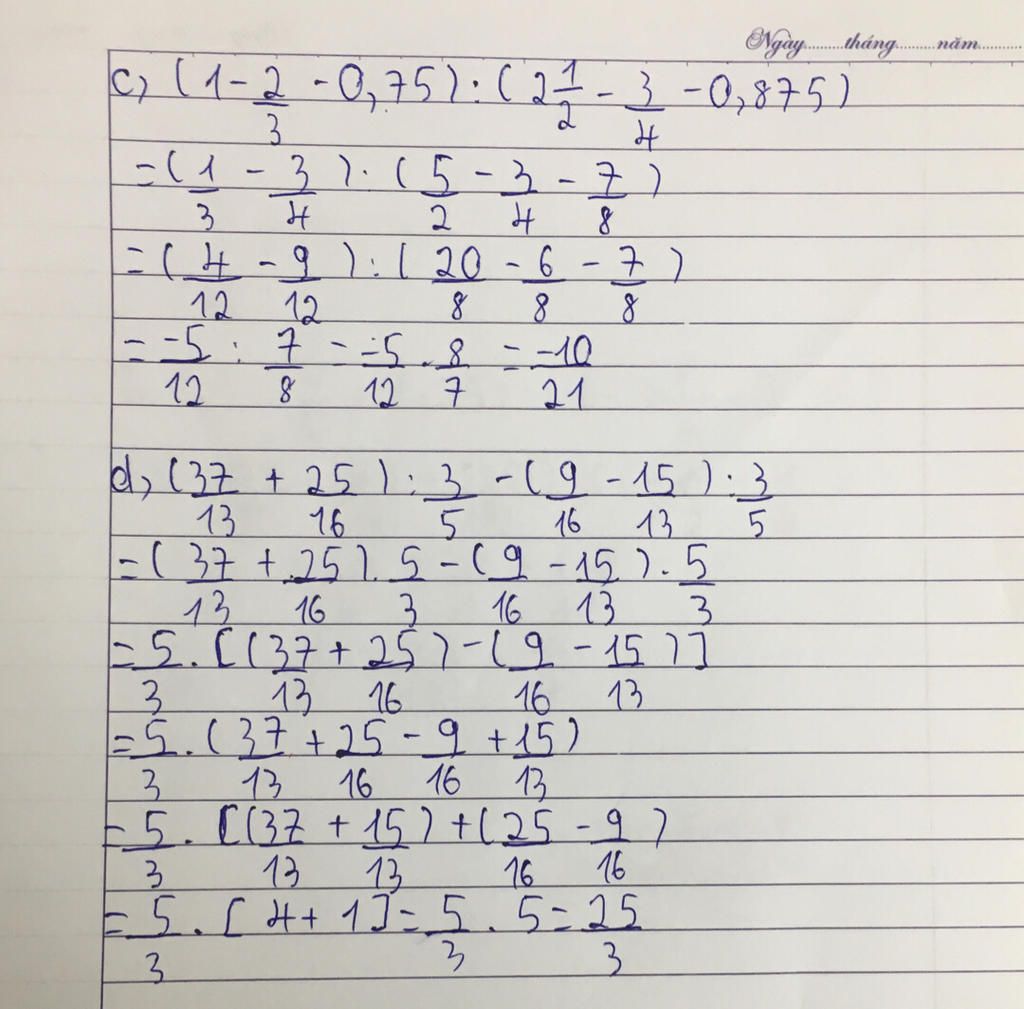 Ngày........tháng........năm........
c, (1 - 2/3 - 0,75) : (2 1/2 - 3/4 - 0,875)
= (1/3 - 3/4) : (5/2 - 3/4 - 7/8)
= (4/12 - 9/12) : (20/8 - 6/8 - 7/8)
= -5/12 : 7/8 = -5/12 . 8/7 = -10/21
d, (37/13 + 25/16) : 3/5 - (9/16 - 15/13) : 3/5
= (37/13 + 25/16) . 5/3 - (9/16 - 15/13) . 5/3
= 5/3 . [(37/13 + 25/16) - (9/16 - 15/13)]
= 5/3 . (37/13 + 25/16 - 9/16 + 15/13)
= 5/3 . [(37/13 + 15/13) + (25/16 - 9/16)
= 5/3 . [4 + 1] = 5/3 . 5 = 25/3